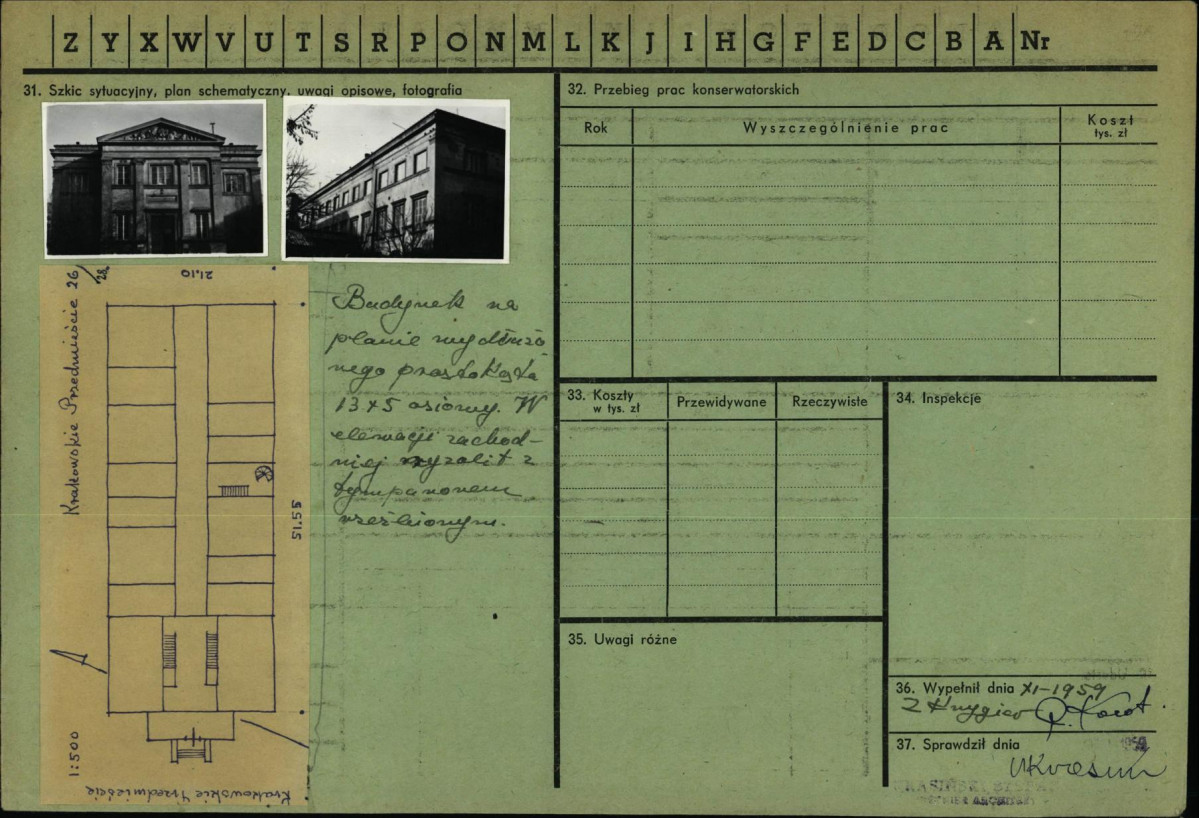 Z Y X W V U T S R P O N M L K J I H G F E D C B A Nr
31. Szkic sytuacyjny, plan schematyczny, uwagi opisowe, fotografia
Krakowskie Przedmieście 26/28
21.10
55.15
1:500
Krakowskie Przedmieście
Budynek na
planie wydłużo
nego prostokąta
13x5 osiowy. W
elewacji zachod-
niej ryzalit z
tympanonem
rzeźbionym.
32. Przebieg prac konserwatorskich
Rok
Wyszczególnienie prac
Koszt
tys. zł
33. Koszty
w tys. zł
Przewidywane
Rzeczywiste
34. Inspekcje
35. Uwagi różne
36. Wypełnił dnia XI-1959
37. Sprawdził dnia